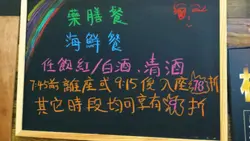 藥膳餐
海鮮餐
任飲紅/白酒.清酒
7:45前離座或9:15後入座 78折
其它時段均可享有 折